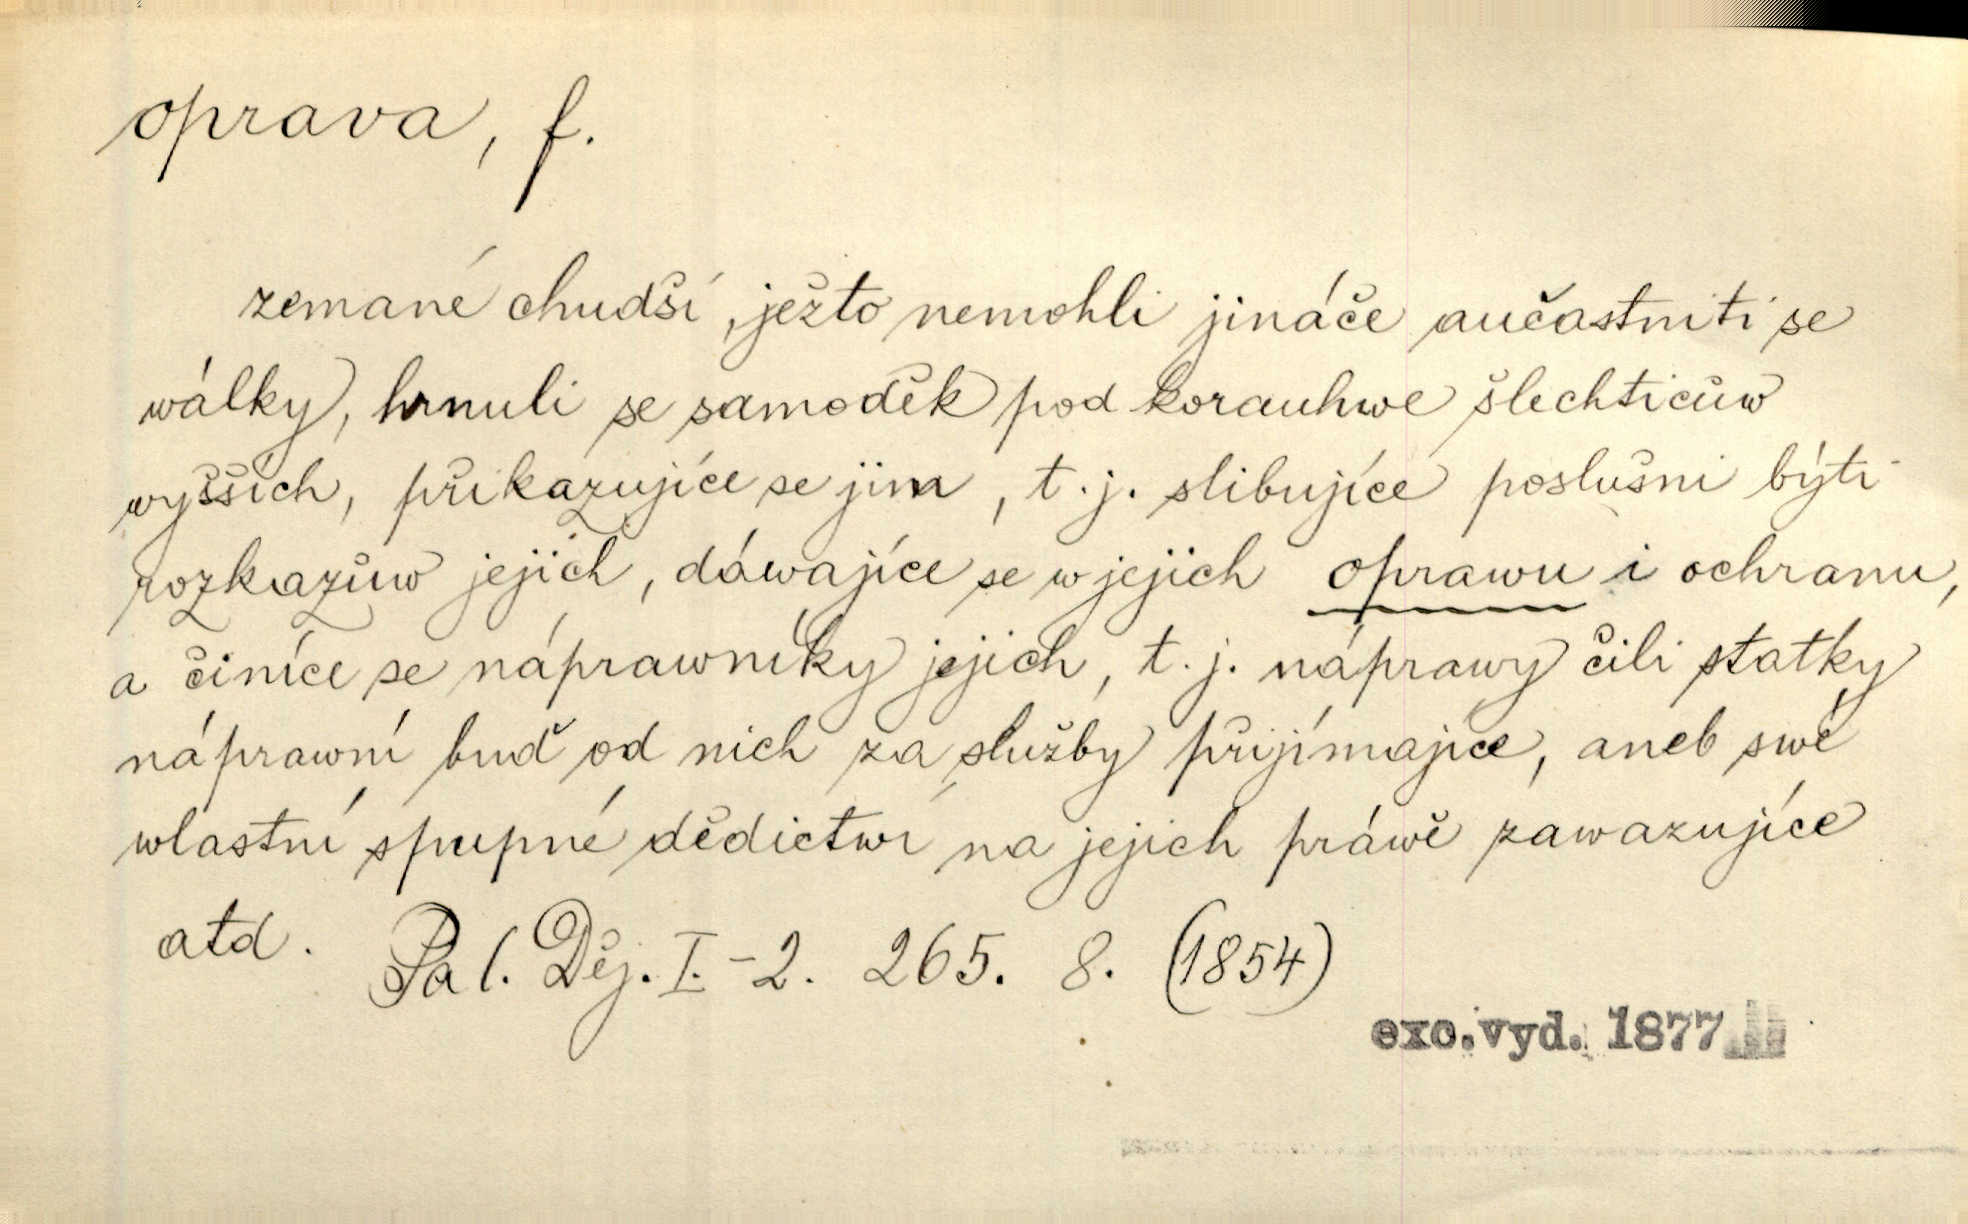 oprava, f.
zemané chudší, ježto nemohli jináče aučastniti se
wálky, hrnuli se samoděk pod korauhwe šlechticůw
wyšších, přikazujíce se jim, t. j. slibujíce poslušni býti
rozkazůw jejich, dáwajíce se w jejich oprawu i ochranu,
a činíce se náprawníky jejich, t. j. náprawy čili statky
náprawní buď od nich za služby přijímajíce, aneb swé
wlastní spupné dědictwí na jejich práwě zawazujíce
atd. Pal. Děj. I. - 2. 265. 8. (1854)
exc. vyd. 1877